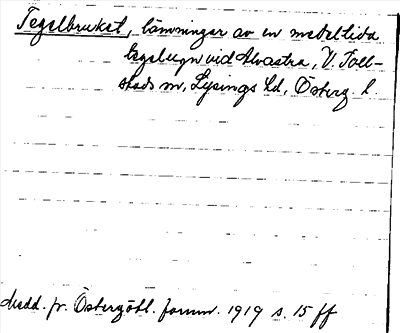 Tegelbruket, lämningar av en medeltida
tegelugn vid Alvastra, V. Toll-
stads sn, Lysings hd, Österg. l.
Medd. fr. Östergötl. fornm. 1919 s. 15 ff